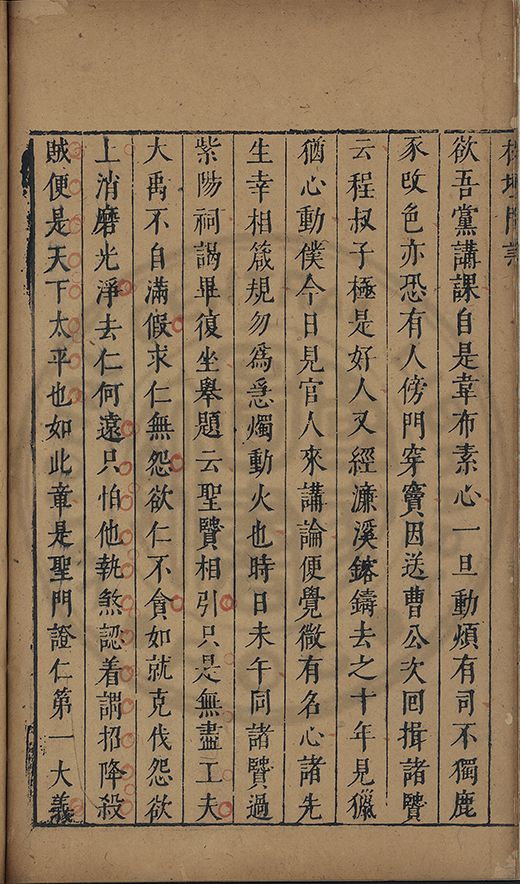 欲吾黨講課自是韋布素心一旦動煩有司不獨鹿
豕改色亦恐有人傍門穿竇因送曹公次回揖諸賢
云程叔子極是好人又經濂溪鎔鑄去之十年見獵
猶心動僕今日見官人來講論便覺微有名心諸先
生幸相箴規勿為急燭動火也時日未午同諸賢過
紫陽祠謁畢復坐舉題云聖賢相引只是無盡工夫
大禹不自滿假求仁無怨欲仁不貪如就克伐怨欲
上消磨光淨去仁何遠只怕他執煞認着謂招降殺
賊便是天下太平也如此章是聖門證仁第一大義